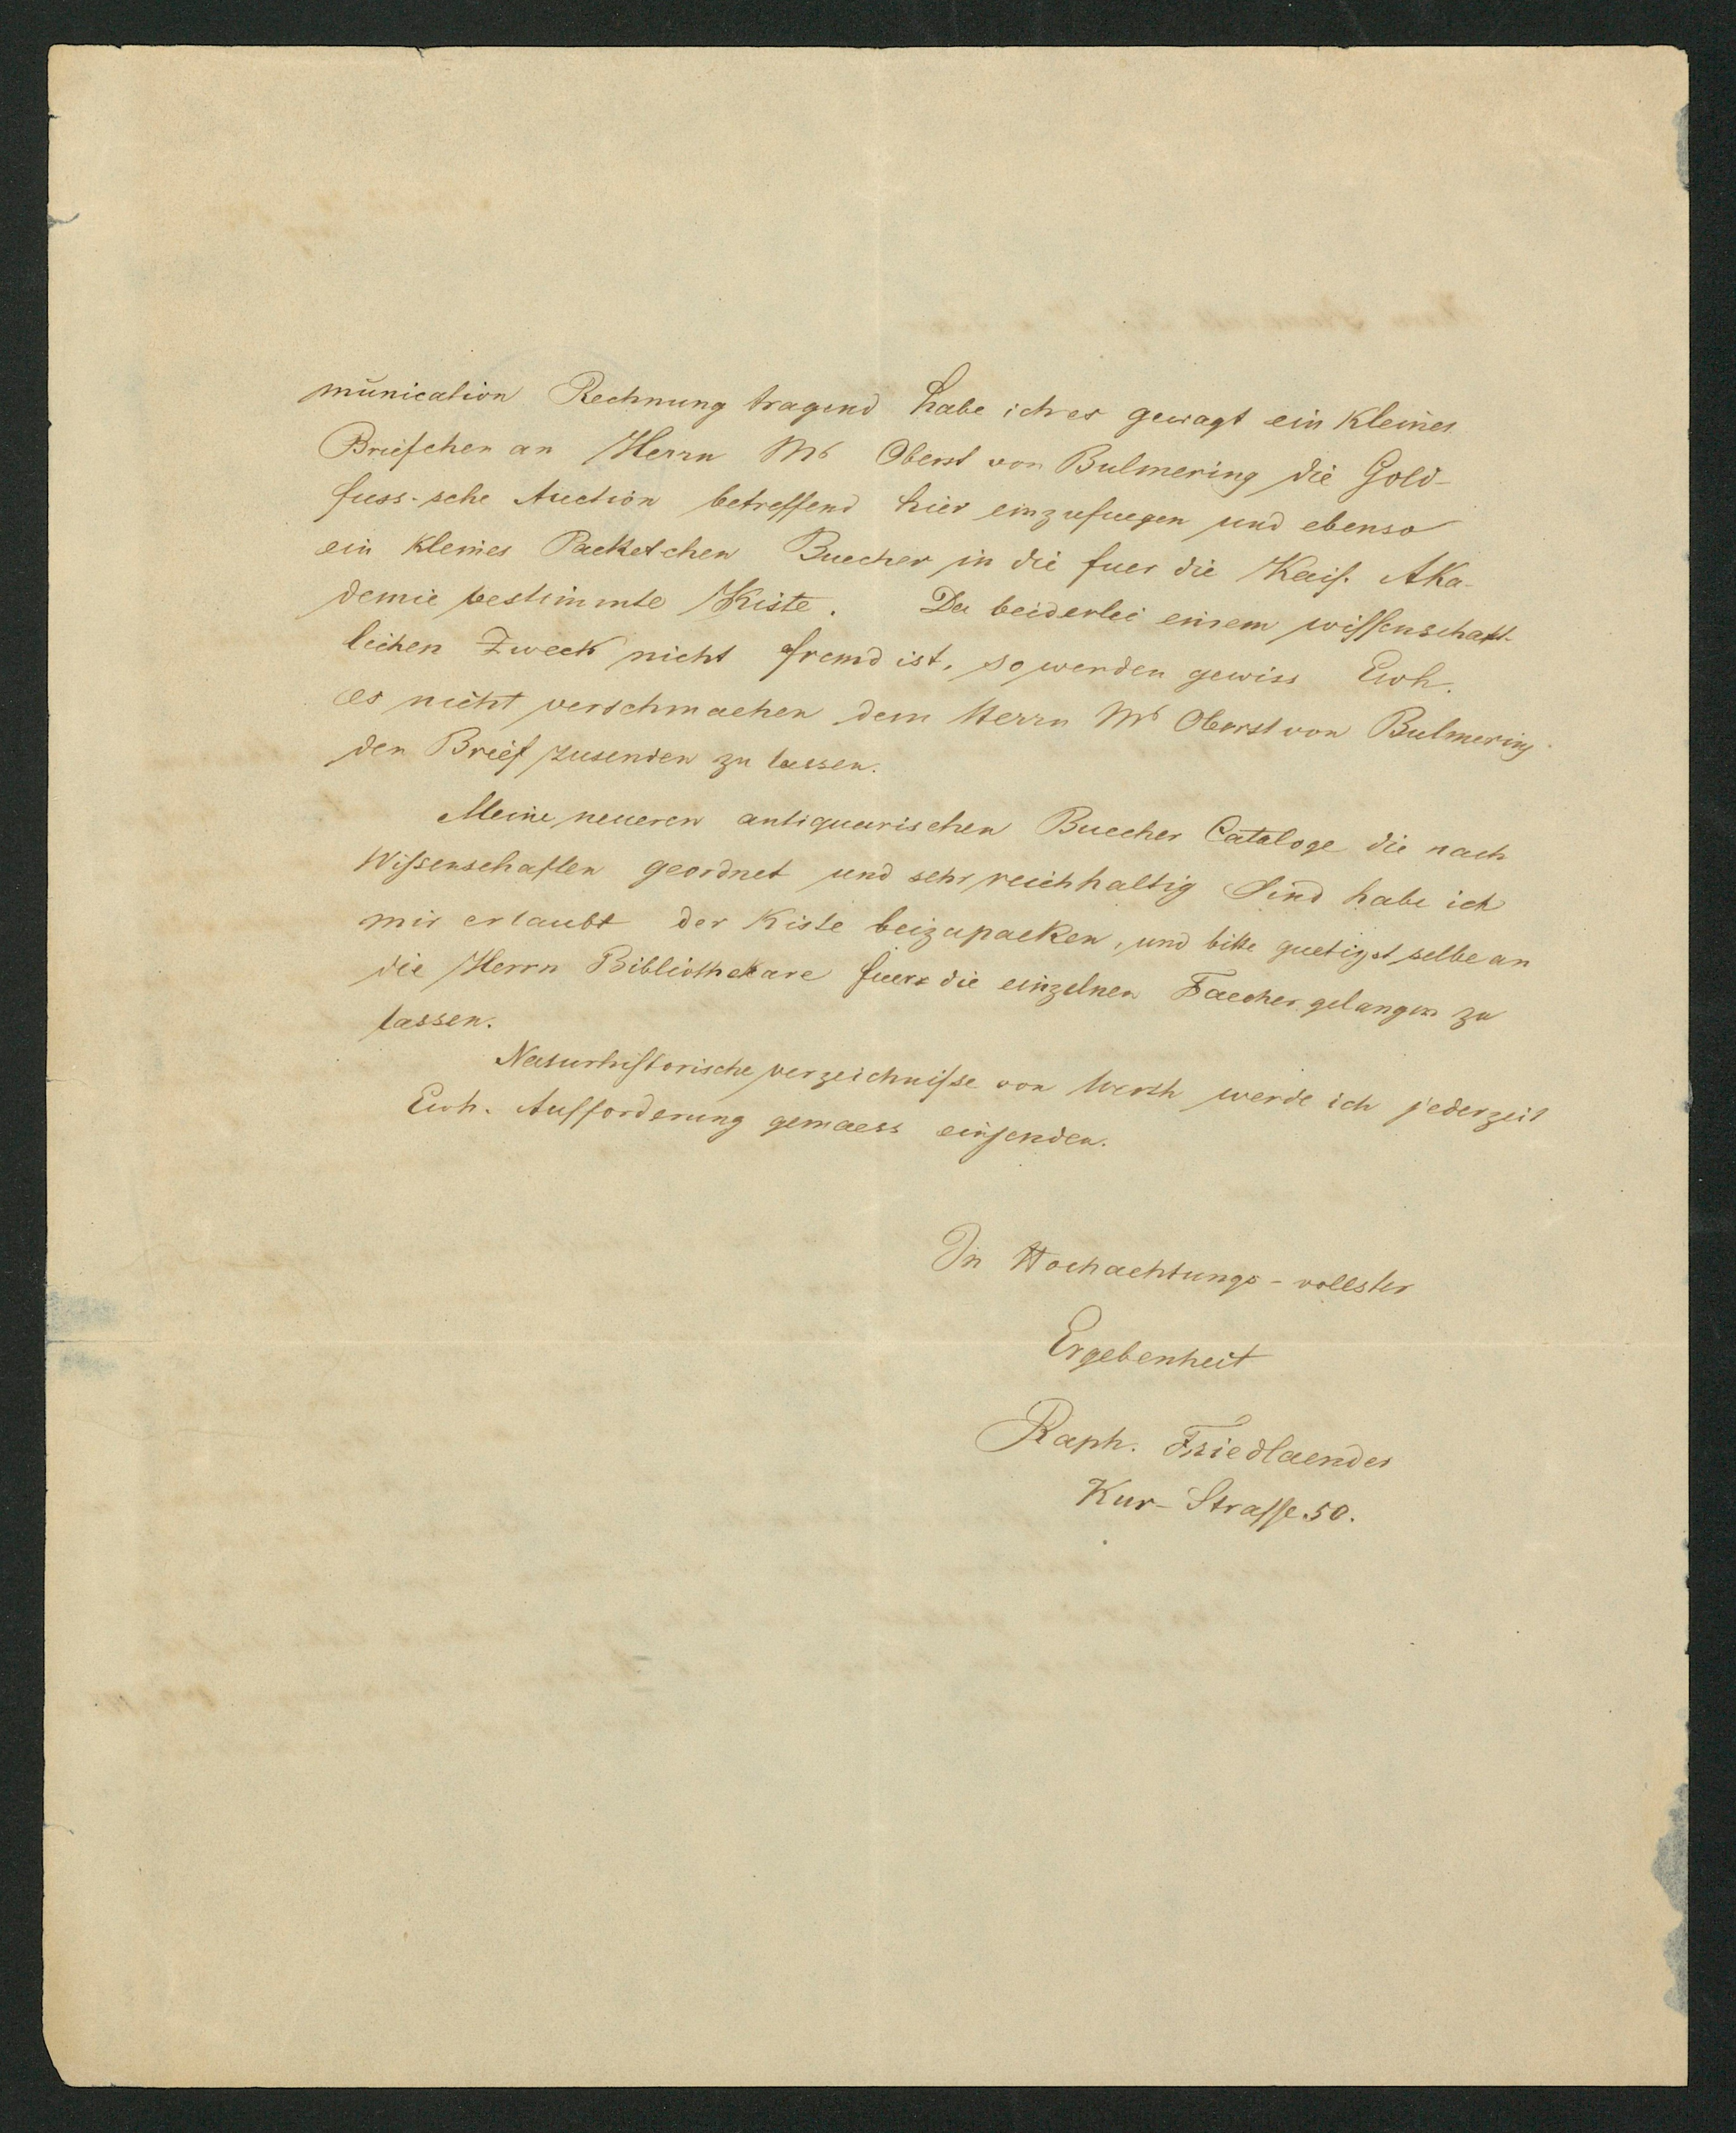 munication Rechnung tragend habe ich es gewagt ein kleines
Briefchen an Herrn Mr Oberst von Bulmering die Gold-
fuss-sche Auction betreffend hier einzufuegen und ebenso
ein kleines Packetchen Buecher in die fuer die Kais. Aka-
demie bestimmte Kiste. Da beiderlei einem wissenschaft-
lichen Zweck nicht fremd ist, so werden gewiss Ewh.
es nicht verschmaehen dem Herrn Mr Oberst von Bulmering
den Brief zusenden zu lassen.
Meine neueren antiquarischen Buecher Cataloge die nach
Wissenschaften geordnet und sehr reichhaltig sind habe ich
mir erlaubt der Kiste beizupacken, und bitte guetigst selbe an
die Herrn Bibliothekare fuer die einzelnen Faecher gelangen zu
lassen.
Naturhistorische verzeichnisse von Werth werde ich jederzeit
Ewh. Aufforderung gemaess einsenden.
In Hochachtungs-vollster
Ergebenheit
Raph. Friedlaender
Kur-Strasse.50.